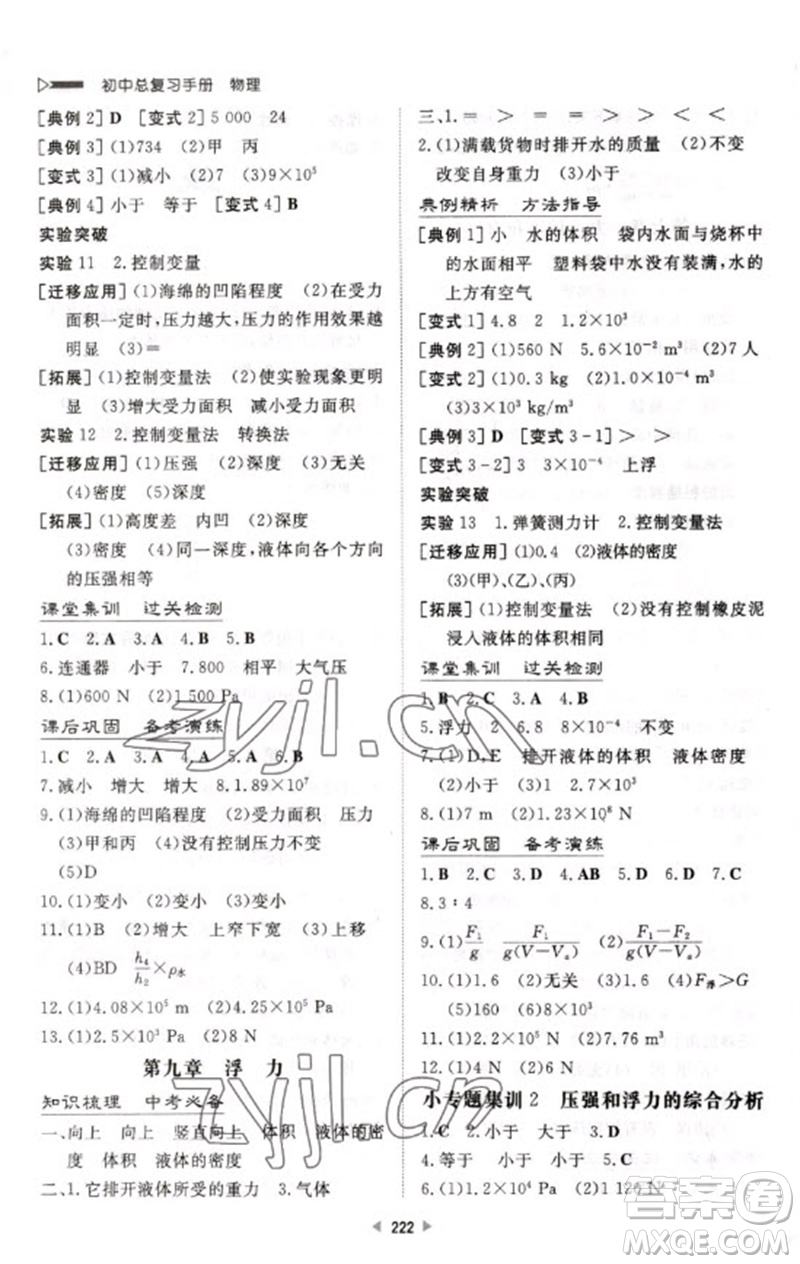 初中总复习手册 物理
[典例2]D [变式2]5 000 24
[典例3](1)734 (2)甲 丙
[变式3](1)减小 (2)7 (3)9×10⁵
[典例4]小于 等于 [变式4]B
实验突破
实验11 2.控制变量
[迁移应用](1)海绵的凹陷程度 (2)在受力
面积一定时,压力越大,压力的作用效果越
明显 (3)=
[拓展](1)控制变量法 (2)使实验现象更明
显 (3)增大受力面积 减小受力面积
实验12 2.控制变量法 转换法
[迁移应用](1)压强 (2)深度 (3)无关
(4)密度 (5)深度
[拓展](1)高度差 内凹 (2)深度
(3)密度 (4)没有,液体向各个方向
的压强相等
课堂集训 过关检测
1.C 2.A 3.A 4.B 5.B
6.连通器 小于 7.800 相平 大气压
8.(1)600 N (2)1 500 Pa
课后巩固 备考演练
1.C 2.A 3.A 4.A 5.A 6.B
7.减小 增大 增大 8.1.89×10⁷
9.(1)海绵的凹陷程度 (2)受力面积 压力
(3)甲和丙 (4)没有控制压力不变
(5)D
10.(1)变小 (2)变小 (3)变小
11.(1)B (2)增大 上窄下宽 (3)上移
(4)BD h₄/h₂×ρ水
12.(1)4.08×10⁵ m (2)4.25×10⁵ Pa
13.(1)2.5×10³ Pa (2)8 N
第九章 浮 力
知识梳理 中考必备
一、向上 向上 竖直向上 体积 液体的密
度 体积 液体的密度
二、1.它排开液体所受的重力 3.气体
三、1.= > = = > > < <
2.(1)满载货物时排开水的质量 (2)不变
改变自身重力 (3)小于
典例精析 方法指导
[典例1]小 水的体积 袋内水面与烧杯中
的水面相平 塑料袋中水没有装满,水的
上方有空气
[变式1]4.8 2 1.2×10³
[典例2](1)560 N 5.6×10⁻² m³ (2)7人
[变式2](1)0.3 kg (2)1.0×10⁻⁴ m³
(3)3×10³ kg/m³
[典例3]D [变式3-1]> >
[变式3-2]3 3×10⁻⁴ 上浮
实验突破
实验13 1.弹簧测力计 2.控制变量法
[迁移应用](1)0.4 (2)液体的密度
(3)(甲)、(乙)、(丙)
[拓展](1)控制变量法 (2)没有控制橡皮泥
浸入液体的体积相同
课堂集训 过关检测
1.B 2.C 3.A 4.B
5.浮力 2 6.8 8×10⁻⁴ 不变
7.(1)D、E 排开液体的体积 液体密度
(2)小于 (3)1 2.7×10³
8.(1)7 m (2)1.23×10⁸ N
课后巩固 备考演练
1.B 2.D 3.D 4.AB 5.D 6.D 7.C
8.3∶4
9.(1)F₁/g F₁/g(V-Vₐ) (2)F₁-F₂/g(V-Vₐ)
10.(1)1.6 (2)无关 (3)1.6 (4)F浮>G
(5)160 (6)8×10³
11.(1)2.2×10⁵ N (2)7.76 m³
12.(1)4 N (2)6 N
小专题集训2 压强和浮力的综合分析
1.C 2.小于 大于 3.D
4.等于 小于 5.C
6.(1)1.2×10⁴ Pa (2)1 120 N
222
zyjl.cn
zyjl.cn
答案圈